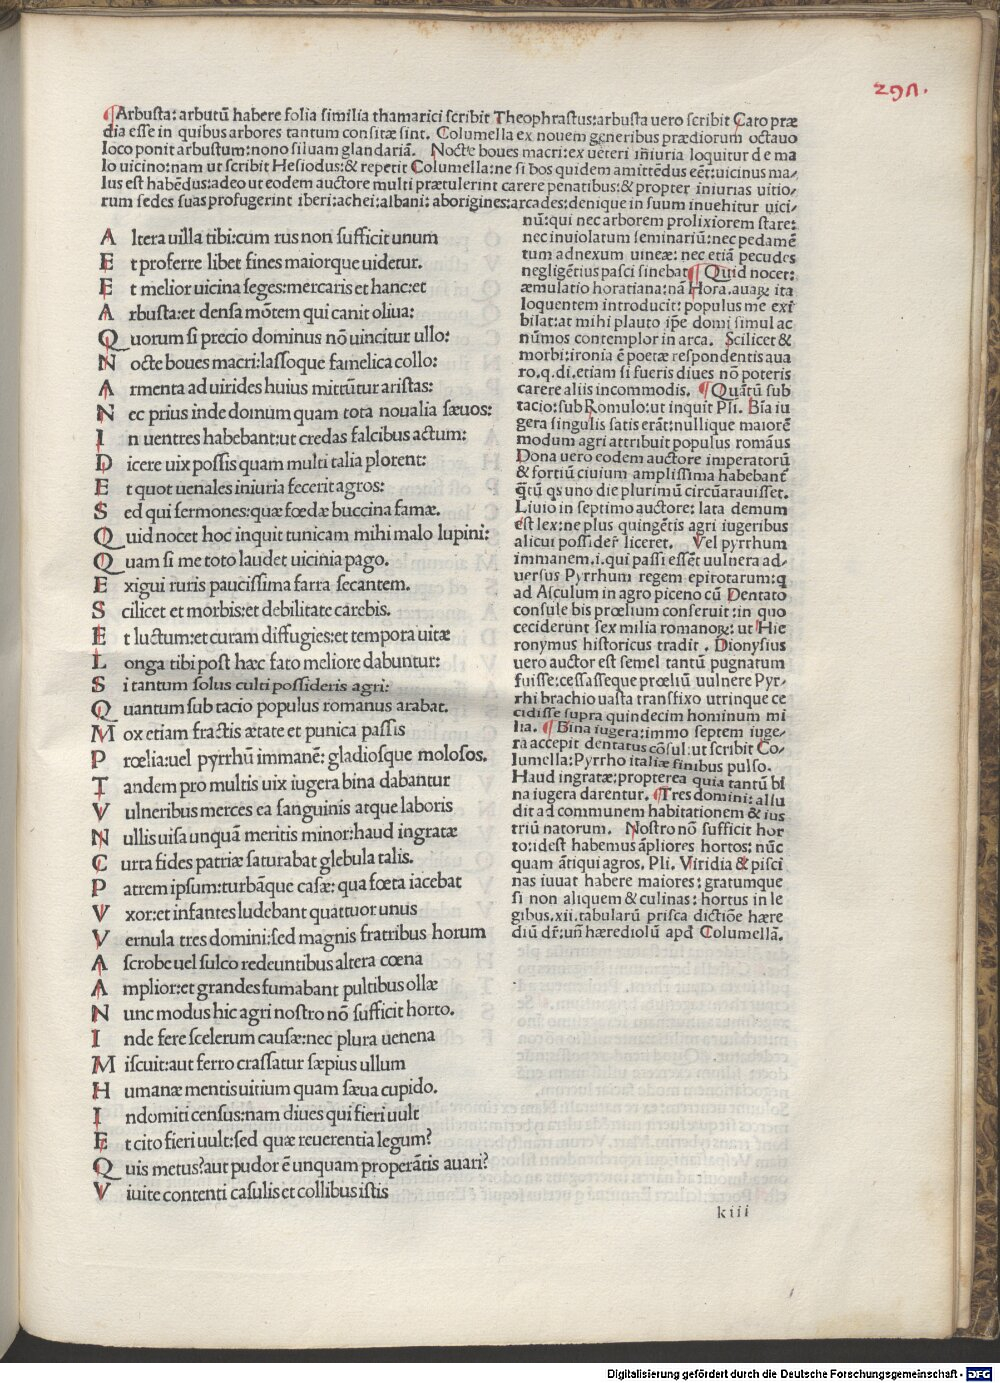 291.
¶Arbusta: arbutū habere folia similia thamarici scribit Theophrastus: arbusta uero scribit Cato præ
dia esse in quibus arbores tantum consitæ sint. Columella ex nouem generibus prædiorum octauo
loco ponit arbustum: nono siluam glandariā. Nocte boues macri: ex ueteri iniuria loquitur de ma
lo uicino: nam ut scribit Hesiodus: & repetit Columella: ne si bos quidem amittēdus eēt: uicinus ma/
lus est habēdus: adeo ut eodem auctore multi prætulerint carere penatibus: & propter iniurias uitio/
rum sedes suas profugerint iberi: achei: albani: aborigines: arcades: denique in suum inuehitur uici/
nū: qui nec arborem prolixiorem stare:
nec inuiolatum seminariū: nec pedamē
tum adnexum uineæ: nec etiā pecudes
negligētius pasci sinebat ¶ Quid nocet:
æmulatio horatiana: nā Hora. auaꝝ ita
loquentem introducit: populus me exi
bilat: at mihi plauto ip̄e domi simul ac
nūmos contemplor in arca. Scilicet &
morbi: ironia ē poetæ respondentis aua
ro. q. di. etiam si fueris diues nō poteris
carere aliis incommodis. ¶ Quātū sub
tacio: sub Romulo: ut inquit Pli. Bīa iu
gera singulis satis erāt: nullique maiorē
modum agri attribuit populus romāus
Dona uero eodem auctore imperatorū
& fortiū ciuium amplissima habebant̄
q̄tū qs uno die plurimū circūarauisset.
Liuio in septimo auctore: lata demum
est lex: ne plus quingētis agri iugeribus
alicui possider̄ liceret. Vel pyrrhum
immanem. i. qui passi essēt uulnera ad/
uersus Pyrrhum regem epirotarum: q
ad Asculum in agro piceno cū Dentato
consule bis prœlium conseruit: in quo
ceciderunt sex milia romanoꝝ: ut Hie
ronymus historicus tradit. Dionysius
uero auctor est semel tantū pugnatum
fuisse: cessasseque prœliū uulnere Pyr/
rhi brachio uasta transfixo utrinque ce
cidisse supra quindecim hominum mi
lia. ¶ Bina iugera: immo septem iuge/
ra accepit dentatus cōsul: ut scribit Co/
lumella: Pyrrho italiæ finibus pulso.
Haud ingratæ: propterea quia tantū bi
na iugera darentur. ¶Tres domini: allu
dit ad communem habitationem & ius
triū natorum. Nostro nō sufficit hor
to: idest habemus āpliores hortos: nūc
quam āntiqui agros. Pli. Viridia & pisci
nas iuuat habere maiores: gratumque
si non aliquem & culinas: hortus in le
gibus. xii. tabularū prisca dictiōe hære
diū dr̄: un̄ hærediolū apd̄ Columellā.
A ltera uilla tibi: cum rus non sufficit unum
E t proferre libet fines maiorque uidetur.
E t melior uicina seges: mercaris et hanc: et
A rbusta: et densa mōtem qui canit oliua:
Q uorum si precio dominus nō uincitur ullo:
N octe boues macri: lassoque famelica collo:
A rmenta ad uirides huius mittūtur aristas:
N ec prius inde domum quam tota noualia sæuos:
I n uentres habebant: ut credas falcibus actum:
D icere uix possis quam multi talia plorent:
E t quot uenales iniuria fecerit agros:
S ed qui sermones: quæ fœdæ buccina famæ.
Q uid nocet hoc inquit tunicam mihi malo lupini:
Q uam si me toto laudet uicinia pago.
E xigui ruris paucissima farra secantem.
S cilicet et morbis: et debilitate carebis.
E t luctum: et curam diffugies: et tempora uitæ
L onga tibi post hæc fato meliore dabuntur:
S i tantum solus culti possideris agri:
Q uantum sub tacio populus romanus arabat.
M ox etiam fractis ætate et punica passis
P rœlia: uel pyrrhū immanē: gladiosque molosos.
T andem pro multis uix iugera bina dabantur
V ulneribus merces ea sanguinis atque laboris
N ullis uisa unquā meritis minor: haud ingratæ
C urta fides patriæ saturabat glebula talis.
P atrem ipsum: turbāque casæ: qua fœta iacebat
V xor: et infantes ludebant quattuor unus
V ernula tres domini: sed magnis fratribus horum
A scrobe uel sulco redeuntibus altera cœna
A mplior: et grandes fumabant pultibus ollæ
N unc modus hic agri nostro nō sufficit horto.
I nde fere scelerum causæ: nec plura uenena
M iscuit: aut ferro crassatur sæpius ullum
H umanæ mentis uitium quam sæua cupido.
I ndomiti census: nam diues qui fieri uult
E t cito fieri uult: sed quæ reuerentia legum?
Q uis metus? aut pudor ē unquam properātis auari?
V iuite contenti casulis et collibus istis
kiii
Digitalisierung gefördert durch die Deutsche Forschungsgemeinschaft - DFG